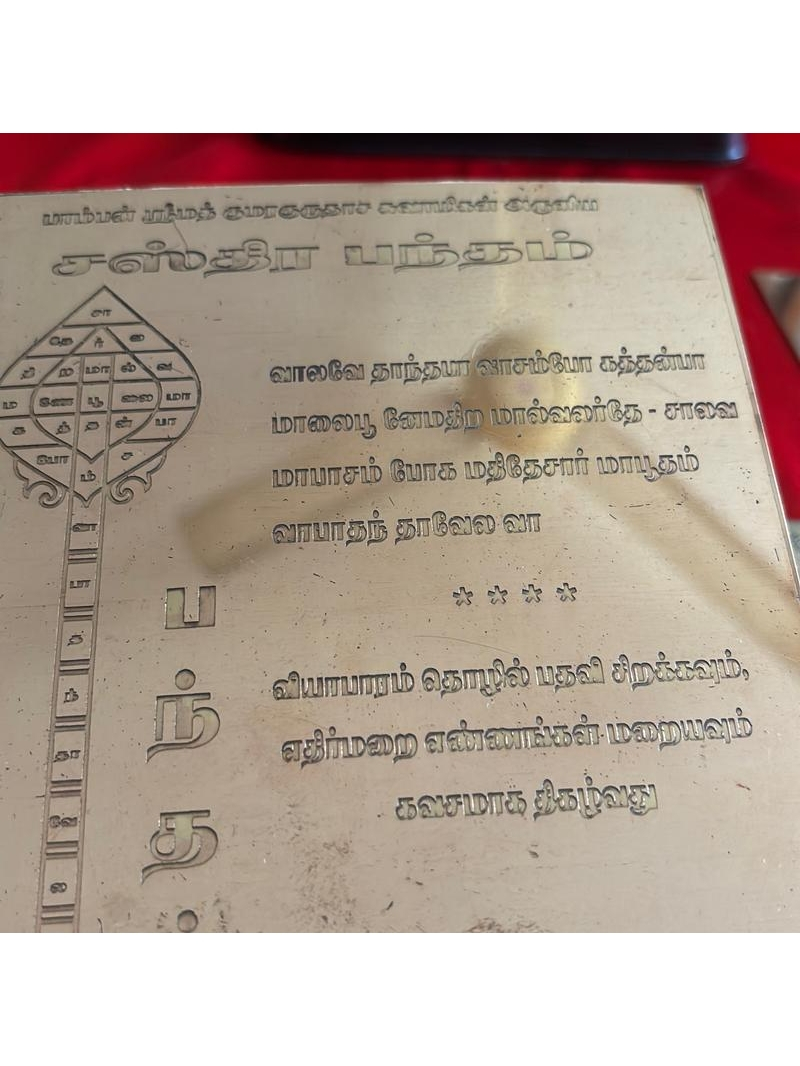 பாம்பன் ஸ்ரீமத் குமரகுருதாச சுவாமிகள் அருளிய
சஸ்திர பந்தம்
வாலவே தாந்தபா வாசம்போ கத்தன்பா
மாலைபூ ணேமதிற மால்வலர்தே - சாலவ
மாபாசம் போக மதிதேசார் மாபூதம்
வாபாதந் தாவேல வா
****
வியாபாரம் தொழில் பதவி சிறக்கவும்,
எதிர்மறை எண்ணங்கள் மறையவும்
கவசமாக திகழ்வது
சா
தே ர் ல
தி ற மா ல் வ
ம ணே பூ லை மா
க த் த ன் பா
போ ச
ம்
வா
பா
த
ந்
தா
வே
ல
ப
ந்
த